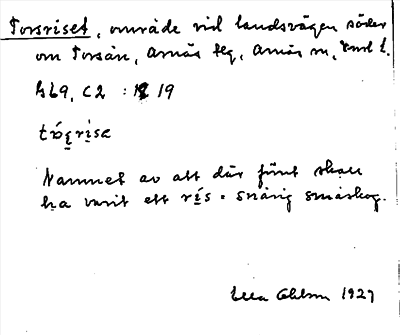 Torsriset, område vid landsvägen söder
om Torsån, Arnäs skg, Arnäs sn,
GL9, C2 : 19
Namnet av att där förut skall
ha varit ett rís = snårig småskog.
Ohlson 1927